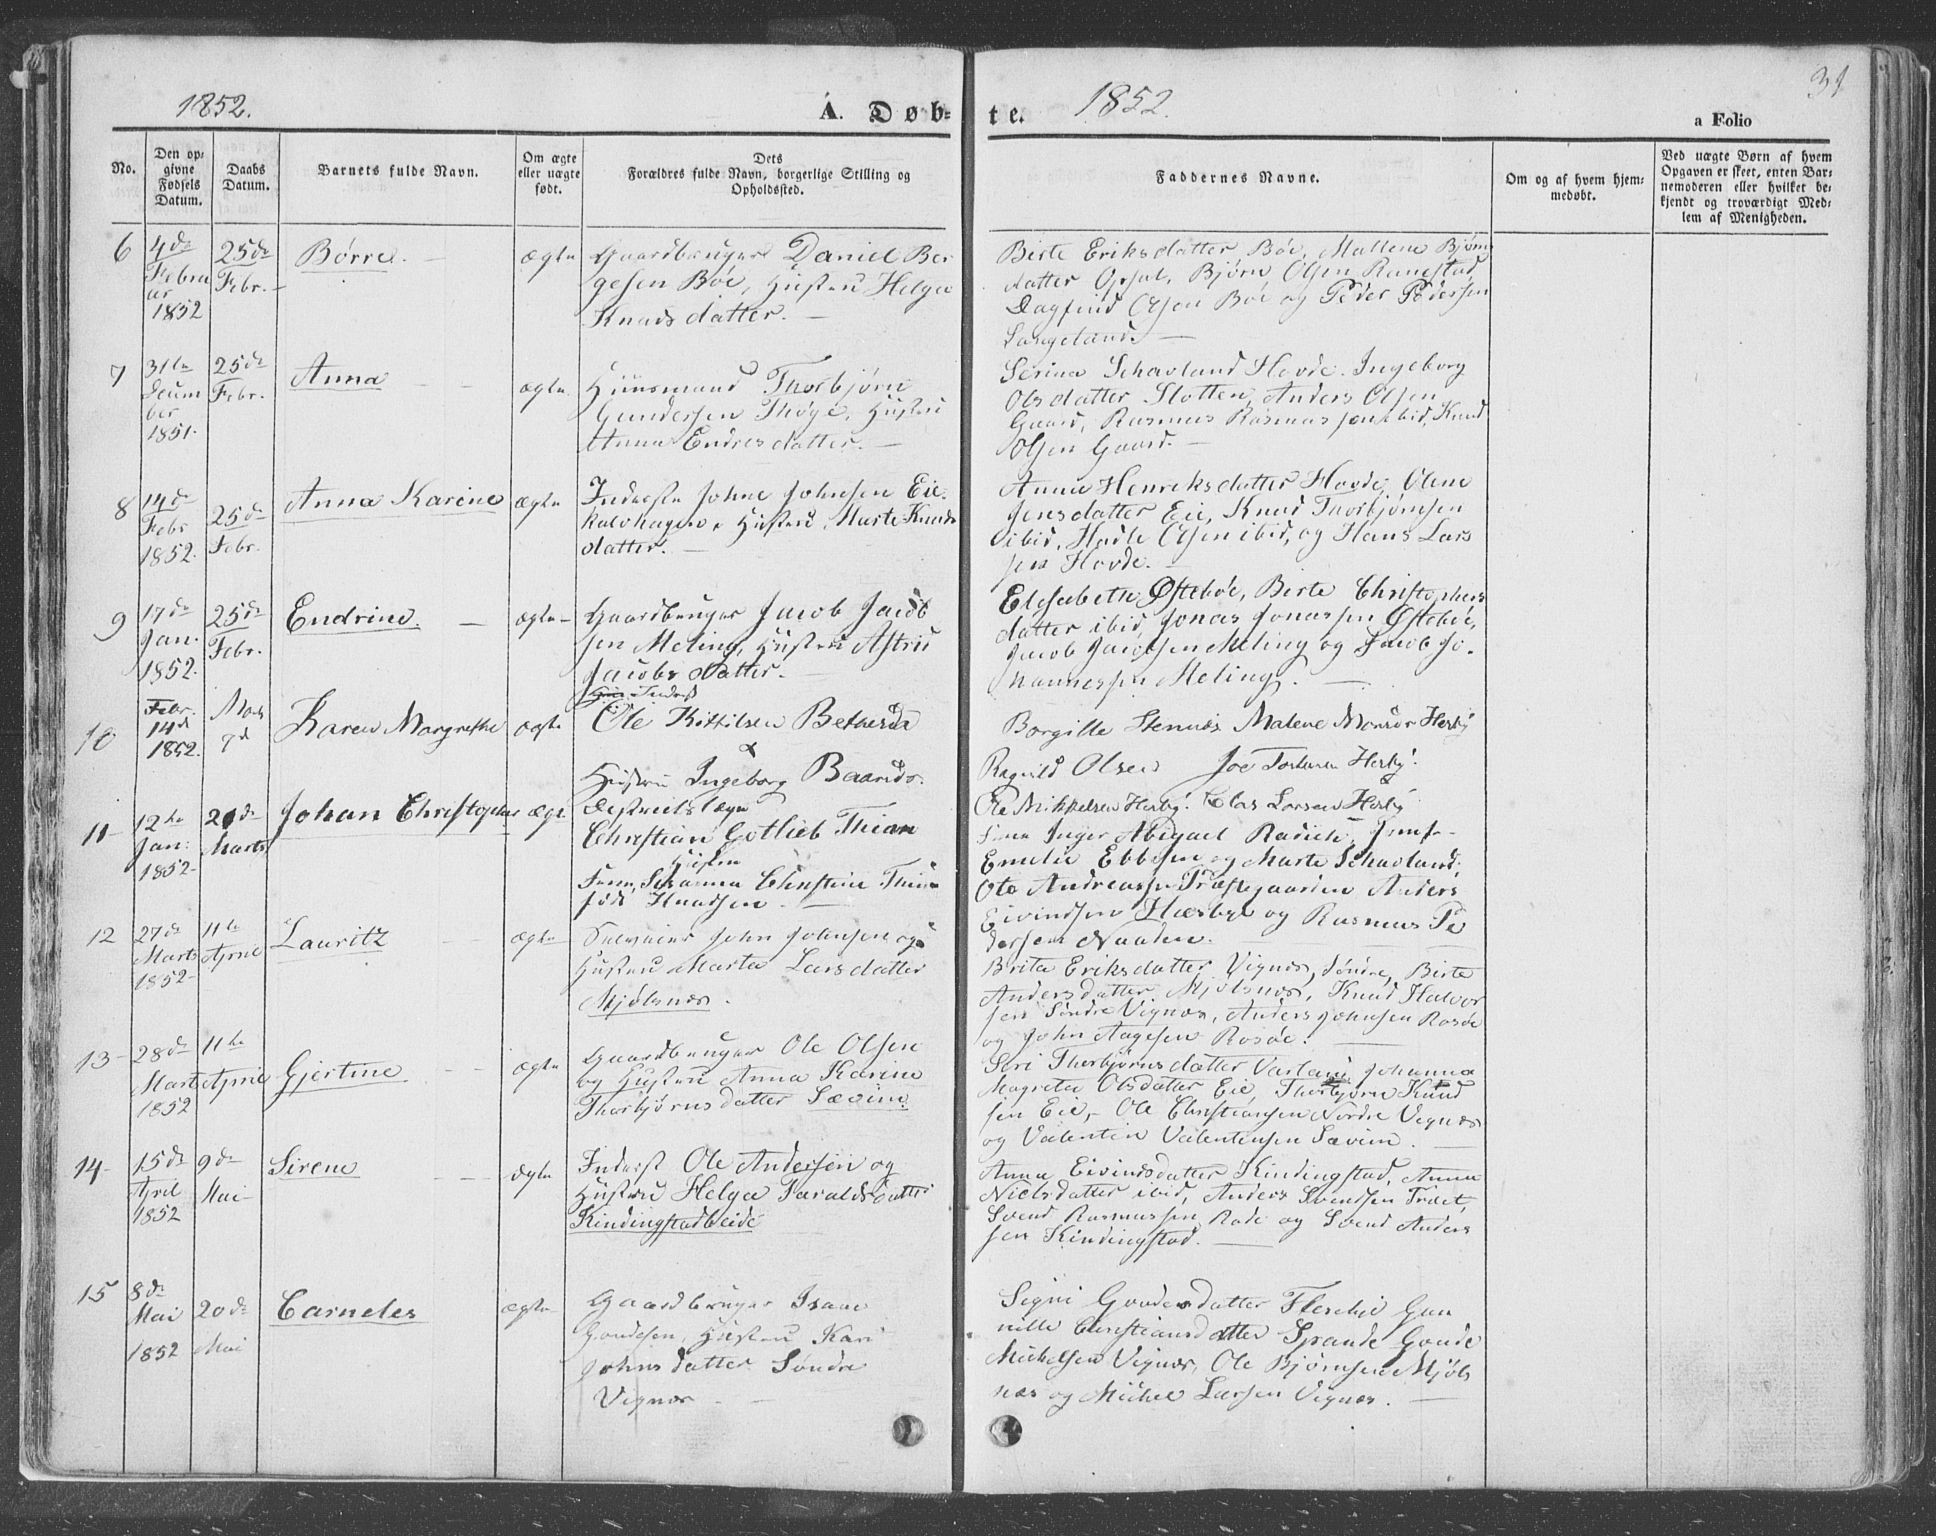 31
1852.
A. Døb-
te.
1852.
a Folio
No.
Den op-
givne
Fødsels
Datum.
Daabs
Datum.
Barnets fulde Navn.
Om ægte
eller uægte
født.
Dets
Forældres fulde Navn, borgerlige Stilling og
Opholdssted.
Faddernes Navne.
Om og af hvem hjem-
medøbt.
Ved uægte Børn af hvem
Opgaven er skeet, enten Bar-
nemoderen eller hvilket be-
kjendt og troværdigt Med-
lem af Menigheden.
6
4de
Febru
ar
1852
25de
Febr.
Børre.
ægte
Gaardbruger Daniel Ber
gesen Bøe, Hustru Helga
Knudsdatter.
Birte Eriksdatter Bøe, Mallene Bjørns
datter Opsal, Bjørn Olsen Ranestad
Dagfind Olsen Bøe og Peder Pedersen
Langeland.
7
31te
Decem
ber
1851.
25de
Febr.
Anna
ægte
Huusmand Thorbjørn
Gundersen Thøge, Hustru
Anna Endresdatter.
Serina Schavland Hovde, Ingeborg
Olsdatter Slotten, Anders Olsen
Gaard, Rasmus Rasmussen ibid, Knud
Olsen Gaard.
8
14de
Febr
1852.
25de
Febr.
Anna Karine
ægte
Inderste Johne Johnsen Eie
kalvhagen, Hustru Marte Knuds
datter.
Anna Henriksdatter Hovde, Olene
Jensdatter Eie, Knud Thorbjørnsen
ibid, Hadle Olsen ibid, og Hans Lars
sen Hovde.
9
17de
Jan.
1852.
25de
Febr.
Endrine.
ægte
Gaardbruger Jacob Jacob
sen Meling, Hustru Astri
Jacobsdatter.
Elisabeth Østebøe, Birte Christophers
datter ibid, Jonas Jonassen Østebøe,
Jacob Jacobsen Meling og Jacob Jo-
hannessen Meling.
10
Febr.
14d
1852.
Marts
9d
Karen Margrethe
ægte
Inderst
Ole Kittilsen Bethesda
Hustru Ingeborg Baards.
Borgille Stennæs Malene Monsdr Hesby
Ragnild Olsen Joe Torkersen Hesby.
Ole Mikkelsen Hesby. Claus Larsen Hesby
11
12te
Jan:
1852
20de
Marts
Johan Christopher
ægte
Destrictslæge
Christian Gotlieb Thien
Hustru
Susanna Christine Thien
født Knudsen.
Inger Abigael Radich, Jomf.
Emelie Ebbesen og Marte Schavland,
Ole Andreassen Præstegaarden Anders
Eivindsen Hæsbye og Rasmus Pe
dersen Naaden.
12
27de
Marts
1852
11te
April
Lauritz
ægte
Selveier John Johnsen og
Hustru Marta Larsdatter
Mjølsnæs.
Brita Eriksdatter Vignæs, søndre, Birte
Andersdatter Mjølsnæs, Knud Halvor
sen Søndre Vignæs, Anders Johnsen Rosøe
og John Aagesen Rosøe.
13
28de
Marts
1852
11te
April
Gjertine
ægte
Gaardbruger Ole Olsen
og Hustru Anna Karine
Thorbjørnsdatter Sævim.
Siri Thorbjørnsdatter Varland, Johanna
Magreta Olsdatter Eie, Thorbjørn Knud
sen Eie, Ole Christiansen Nordre Vignæs
og Valentin Valentinsen Sævim.
14
15de
April
1852
9de
Mai
Sirene
ægte
Inderst Ole Andersen og
Hustru Helga Taraldsdatter
Kindingstadbeide
Anna Eivindsdatter Kindingstad, Anna
Nielsdatter ibid, Anders Svendsen Træet,
Svend Rasmussen Rade og Svend Anders
sen Kindingstad.
15
8de
Mai
1852
20de
Mai
Carneles
ægte
Gaardbruger Isaac
Goudesen, Hustru Kari
Johnsdatter Søndre
Vignæs
Signi Goudesdatter Fleskje Gun
nille Christiansdatter Spande Goude
Michelsen Vignæs, Ole Bjørnsen Mjøls
næs og Michel Larsen Vignæs.